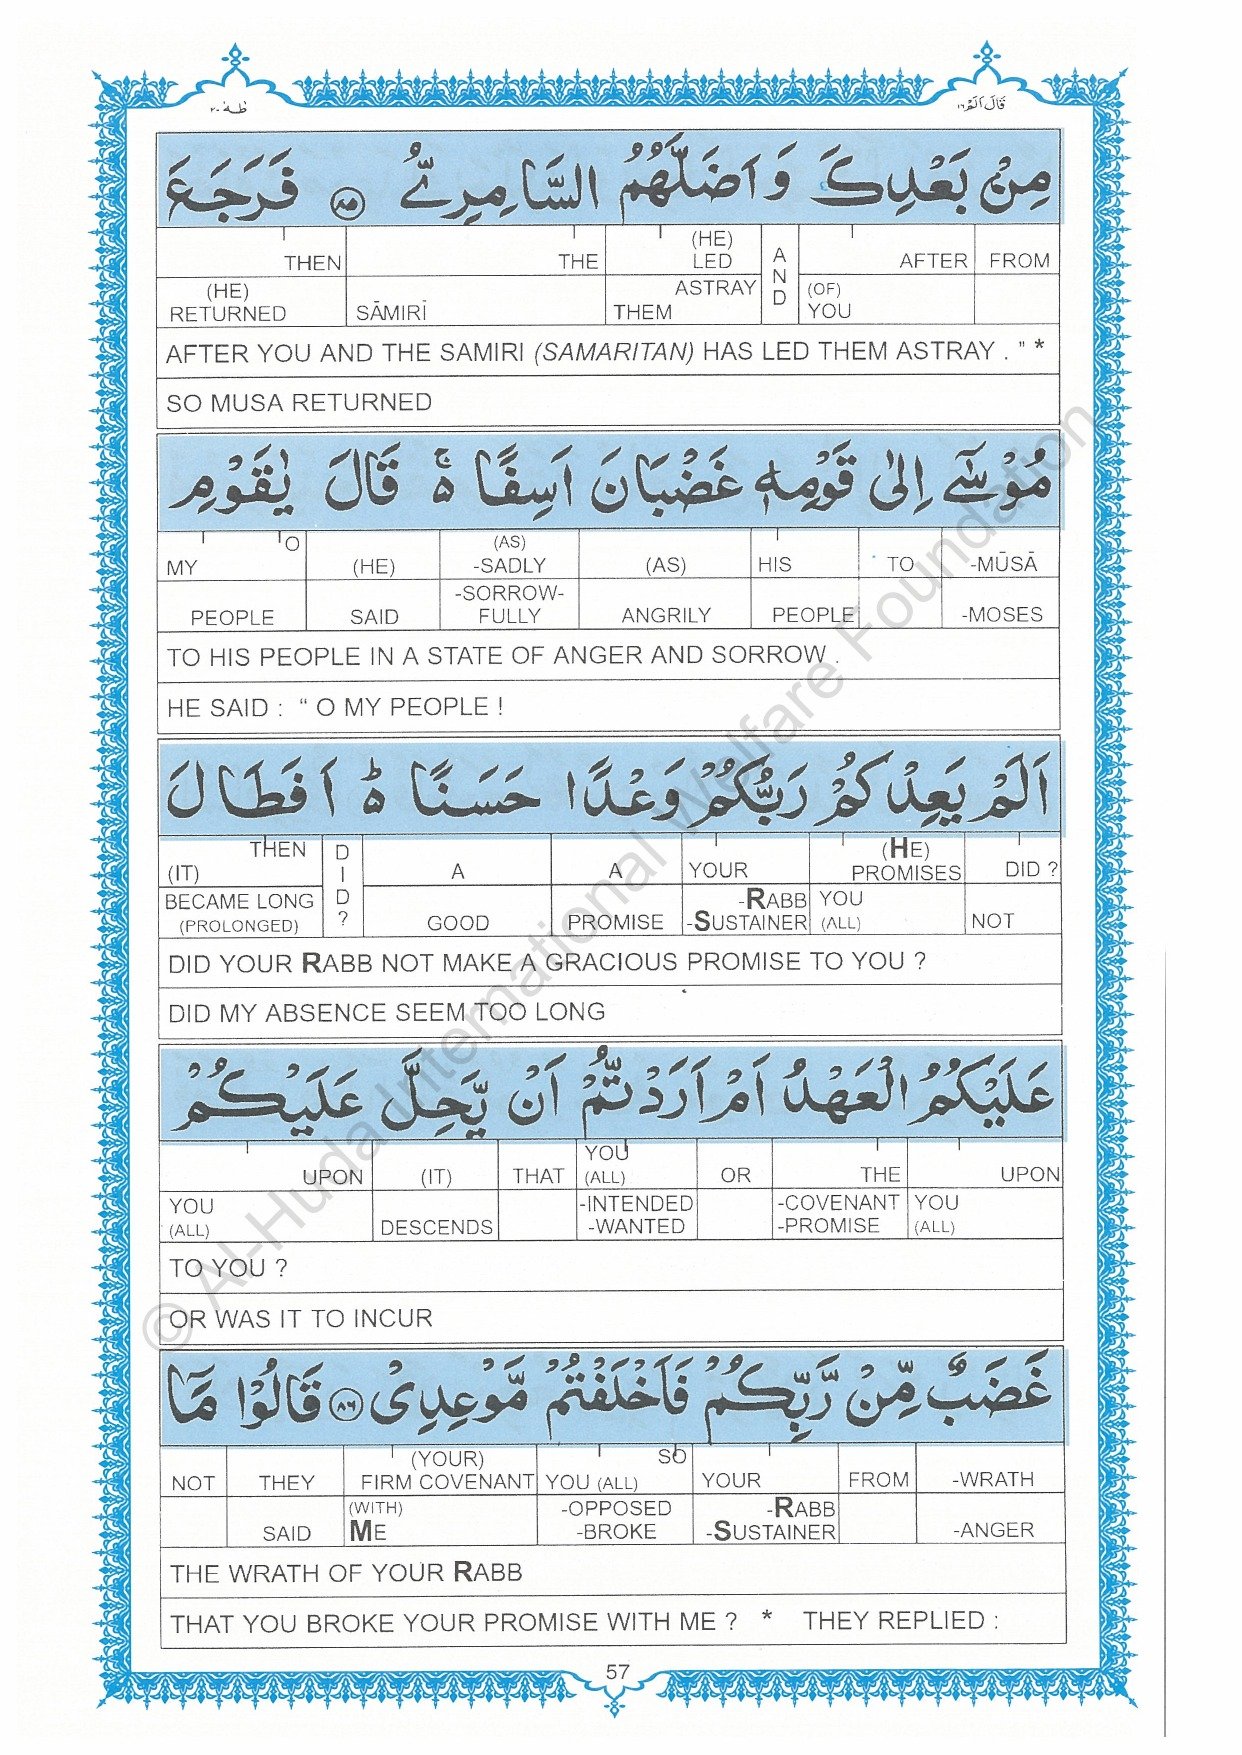 طٰهٰ ٢٠
قَالَ اَلَمْ ١٦
مِنْۢ بَعْدِكَ وَاَضَلَّهُمُ السَّامِرِىُّ ﴿٨٥﴾ فَرَجَعَ
THEN THE (HE) LED A N D AFTER FROM
(HE) RETURNED SĀMIRĪ ASTRAY THEM (OF) YOU
AFTER YOU AND THE SAMIRI (SAMARITAN) HAS LED THEM ASTRAY . ” *
SO MUSA RETURNED
مُوْسٰٓى اِلٰى قَوْمِهٖ غَضْبَانَ اَسِفًا ۚ قَالَ يٰقَوْمِ
MY O (HE) (AS) -SADLY (AS) HIS TO -MŪSĀ
PEOPLE SAID -SORROW-FULLY ANGRILY PEOPLE -MOSES
TO HIS PEOPLE IN A STATE OF ANGER AND SORROW .
HE SAID : “ O MY PEOPLE !
اَلَمْ يَعِدْكُمْ رَبُّكُمْ وَعْدًا حَسَنًا ؕ اَفَطَالَ
(IT) THEN D I D ? A A YOUR (HE) PROMISES DID ?
BECAME LONG (PROLONGED) GOOD PROMISE -RABB -SUSTAINER YOU (ALL) NOT
DID YOUR RABB NOT MAKE A GRACIOUS PROMISE TO YOU ?
DID MY ABSENCE SEEM TOO LONG
عَلَيْكُمُ الْعَهْدُ اَمْ اَرَدْتُّمْ اَنْ يَّحِلَّ عَلَيْكُمْ
UPON (IT) THAT YOU (ALL) OR THE UPON
YOU (ALL) DESCENDS -INTENDED -WANTED -COVENANT -PROMISE YOU (ALL)
TO YOU ?
OR WAS IT TO INCUR
غَضَبٌ مِّنْ رَّبِّكُمْ فَاَخْلَفْتُمْ مَّوْعِدِىْ ﴿٨٦﴾ قَالُوْا مَآ
NOT THEY (YOUR) FIRM COVENANT YOU (ALL) SO YOUR FROM -WRATH
SAID (WITH) ME -OPPOSED -BROKE -RABB -SUSTAINER -ANGER
THE WRATH OF YOUR RABB
THAT YOU BROKE YOUR PROMISE WITH ME ? * THEY REPLIED :
57
© Al-Huda International Welfare Foundation